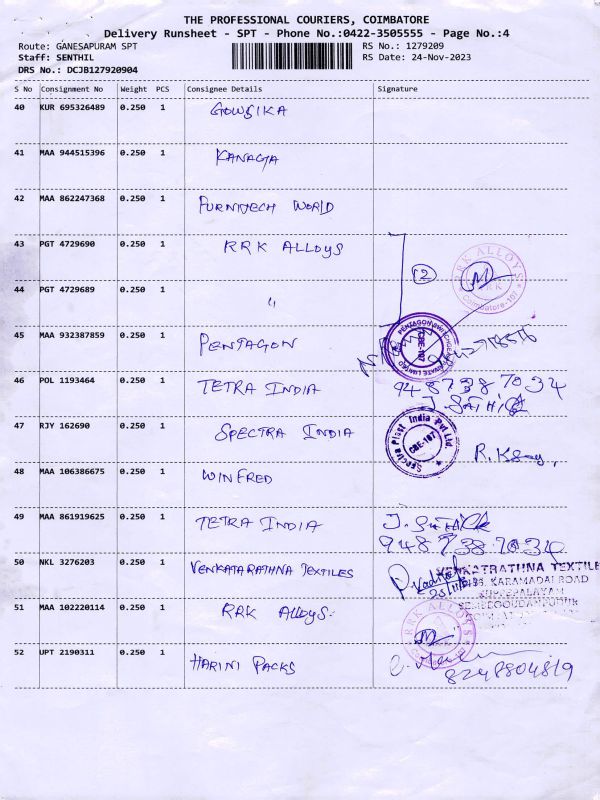 THE PROFESSIONAL COURIERS, COIMBATORE
Delivery Runsheet - SPT - Phone No.:0422-3505555 - Page No.:4
Route: GANESAPURAM SPT RS No.: 1279209
Staff: SENTHIL RS Date: 24-Nov-2023
DRS No.: DCJB127920904
S No Consignment No Weight PCS Consignee Details Signature
40 KUR 695326489 0.250 1 GOWSIKA
41 MAA 944515396 0.250 1 KANAGA
42 MAA 862247368 0.250 1 FURNITECH WORLD
43 PGT 4729690 0.250 1 RRK ALLOYS
RRK ALLOYS RRK Coimbatore-107
2
44 PGT 4729689 0.250 1 "
45 MAA 932387859 0.250 1 PENTAGON
PENTAGON PRIVATE LIMITED CBE-107
46 POL 1193464 0.250 1 TETRA INDIA 948738 7034
J. SATHICK
47 RJY 162690 0.250 1 SPECTRA INDIA
Spectra Plast India Pvt Ltd. CBE-107
48 MAA 106386675 0.250 1 WINFRED
49 MAA 861919625 0.250 1 TETRA INDIA J. SATHICK
948738 7034
50 NKL 3276203 0.250 1 VENKATARATHNA TEXTILES
VENKATRATHNA TEXTILE
KARAMADAI ROAD
51 MAA 102220114 0.250 1 RRK Alloys.
RRK ALLOYS
52 UPT 2190311 0.250 1 HARINI PACKS
8248804819